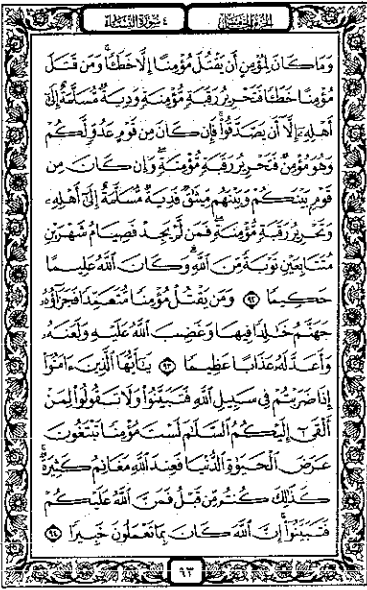 الجزء الخامس
٤ سورة النساء
وَمَا كَانَ لِمُؤْمِنٍ أَن يَقْتُلَ مُؤْمِنًا إِلَّا خَطَـًٔا ۚ وَمَن قَتَلَ
مُؤْمِنًا خَطَـًٔا فَتَحْرِيرُ رَقَبَةٍ مُّؤْمِنَةٍ وَدِيَةٌ مُّسَلَّمَةٌ إِلَىٰٓ
أَهْلِهِۦٓ إِلَّآ أَن يَصَّدَّقُوا۟ ۚ فَإِن كَانَ مِن قَوْمٍ عَدُوٍّ لَّكُمْ
وَهُوَ مُؤْمِنٌ فَتَحْرِيرُ رَقَبَةٍ مُّؤْمِنَةٍ ۖ وَإِن كَانَ مِن
قَوْمٍۭ بَيْنَكُمْ وَبَيْنَهُم مِّيثَـٰقٌ فَدِيَةٌ مُّسَلَّمَةٌ إِلَىٰٓ أَهْلِهِۦ
وَتَحْرِيرُ رَقَبَةٍ مُّؤْمِنَةٍ ۖ فَمَن لَّمْ يَجِدْ فَصِيَامُ شَهْرَيْنِ
مُتَتَابِعَيْنِ تَوْبَةً مِّنَ ٱللَّهِ ۗ وَكَانَ ٱللَّهُ عَلِيمًا
حَكِيمًا ٩٢ وَمَن يَقْتُلْ مُؤْمِنًا مُّتَعَمِّدًا فَجَزَآؤُهُۥ
جَهَنَّمُ خَـٰلِدًا فِيهَا وَغَضِبَ ٱللَّهُ عَلَيْهِ وَلَعَنَهُۥ
وَأَعَدَّ لَهُۥ عَذَابًا عَظِيمًا ٩٣ يَـٰٓأَيُّهَا ٱلَّذِينَ ءَامَنُوٓا۟
إِذَا ضَرَبْتُمْ فِى سَبِيلِ ٱللَّهِ فَتَبَيَّنُوا۟ وَلَا تَقُولُوا۟ لِمَنْ
أَلْقَىٰٓ إِلَيْكُمُ ٱلسَّلَـٰمَ لَسْتَ مُؤْمِنًا تَبْتَغُونَ
عَرَضَ ٱلْحَيَوٰةِ ٱلدُّنْيَا فَعِندَ ٱللَّهِ مَغَانِمُ كَثِيرَةٌ ۚ
كَذَٰلِكَ كُنتُم مِّن قَبْلُ فَمَنَّ ٱللَّهُ عَلَيْكُمْ
فَتَبَيَّنُوٓا۟ ۚ إِنَّ ٱللَّهَ كَانَ بِمَا تَعْمَلُونَ خَبِيرًا ٩٤
٩٣